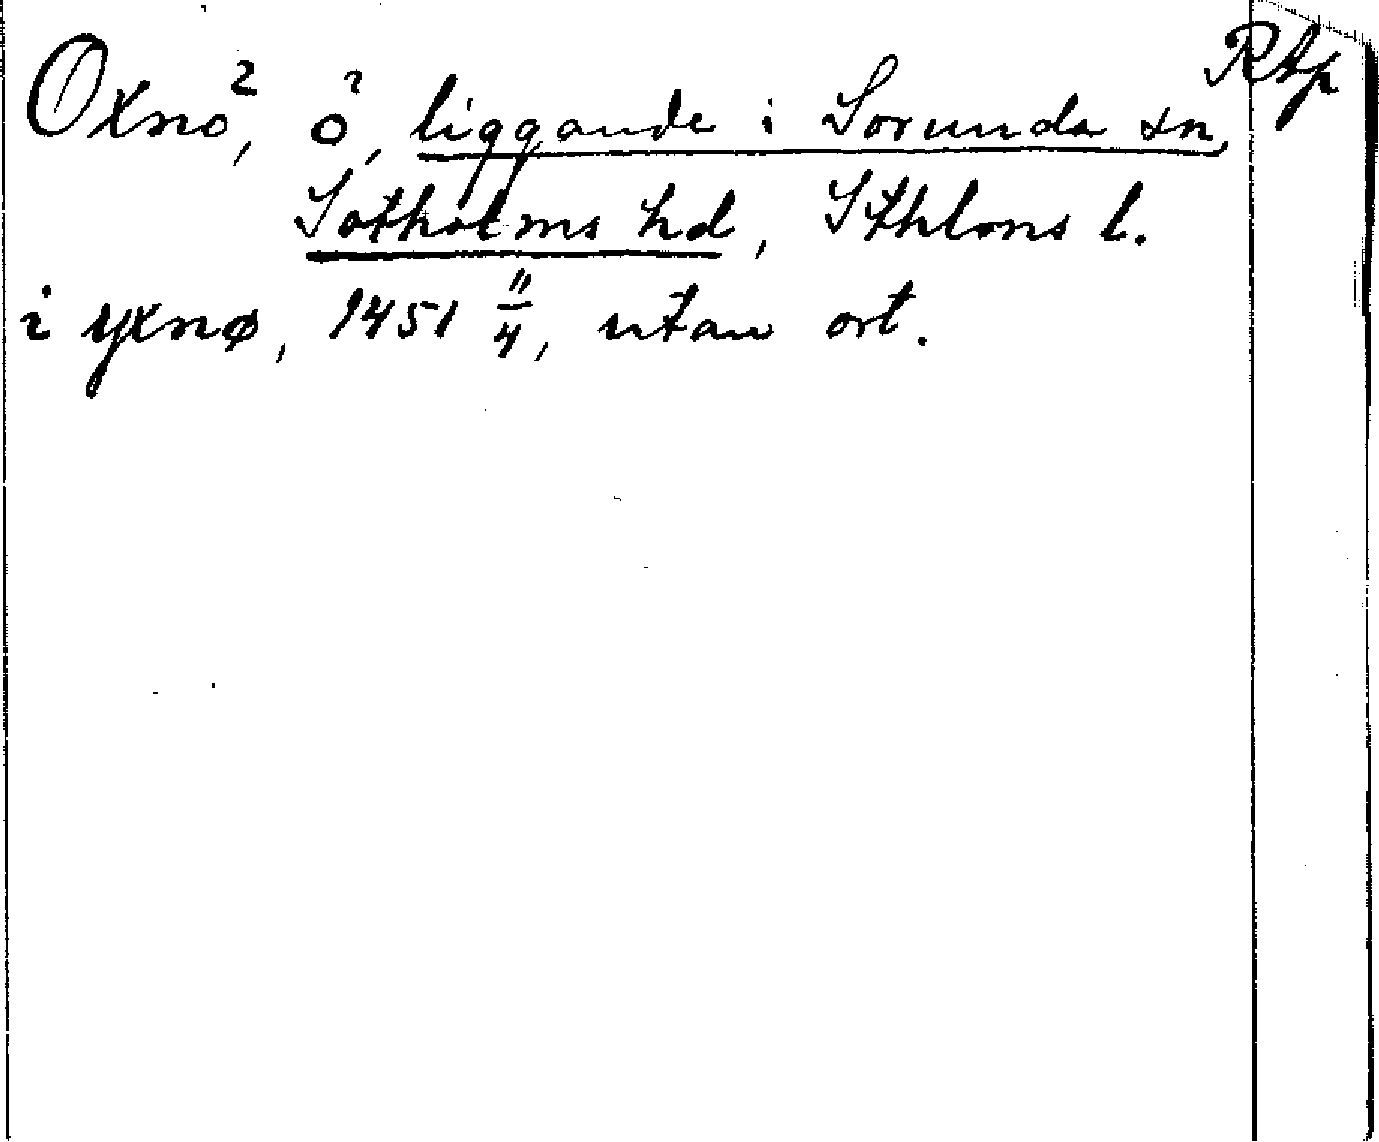 RAp
Oxnö, ö, liggande i Sorunda sn,
Sotholms hd, Sthlms l.
i yxnø, 1451 11/4, utan ort.